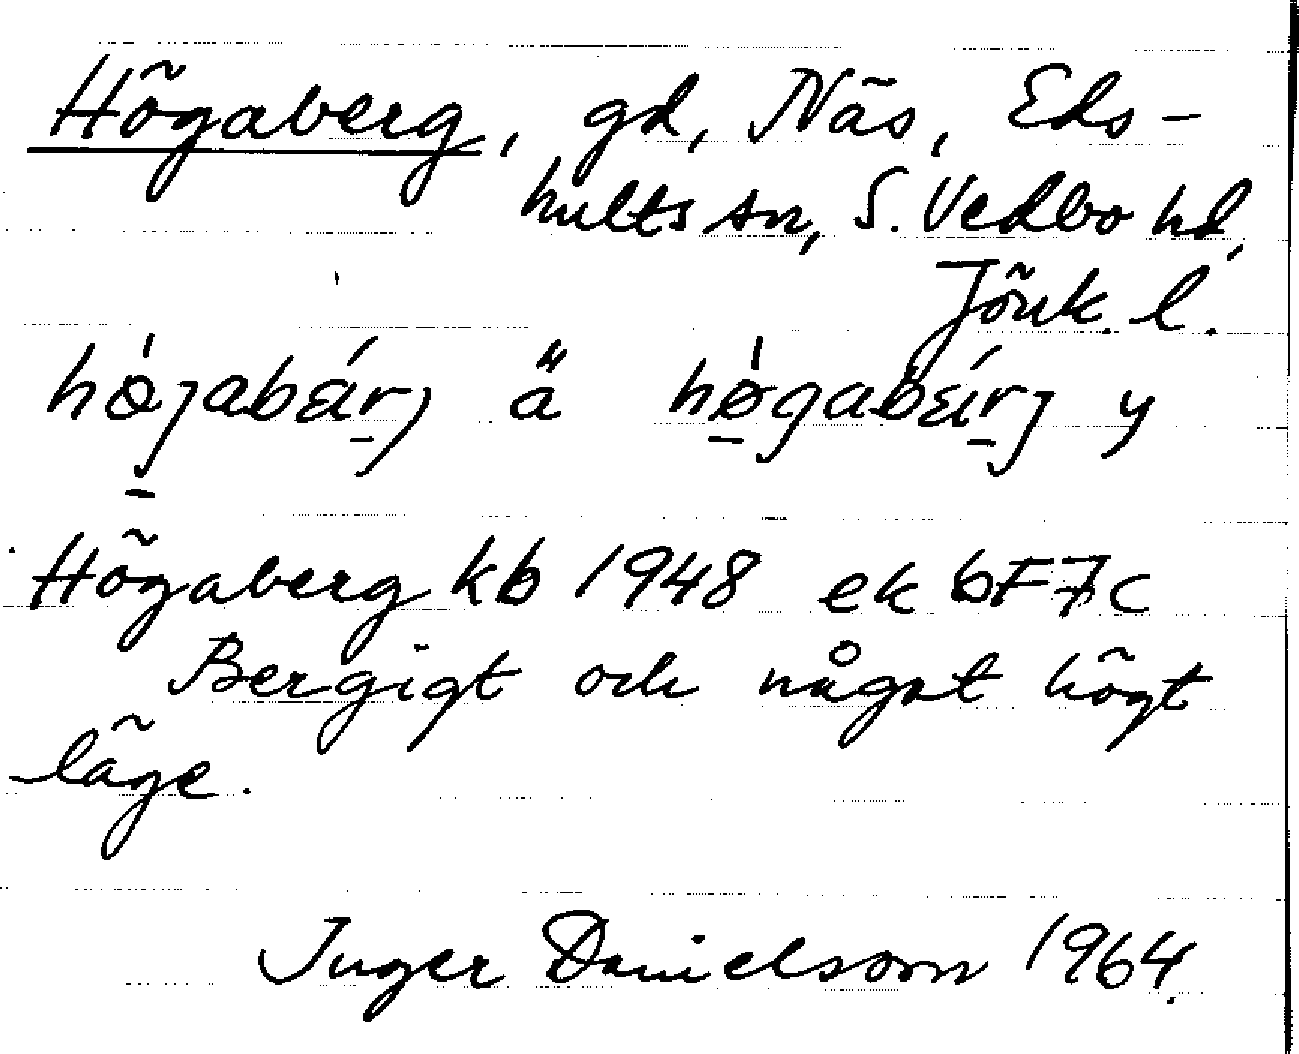 Högaberg, gd, Näs, Eds-
hults sn, S. Vedbo hd,
Jönk. l.
hø̀jabǽrj ä hø̀gabǽrj y
Högaberg kb 1948 ek 6F7c
Bergigt och något högt
läge.
Inger Danielsson 1964.